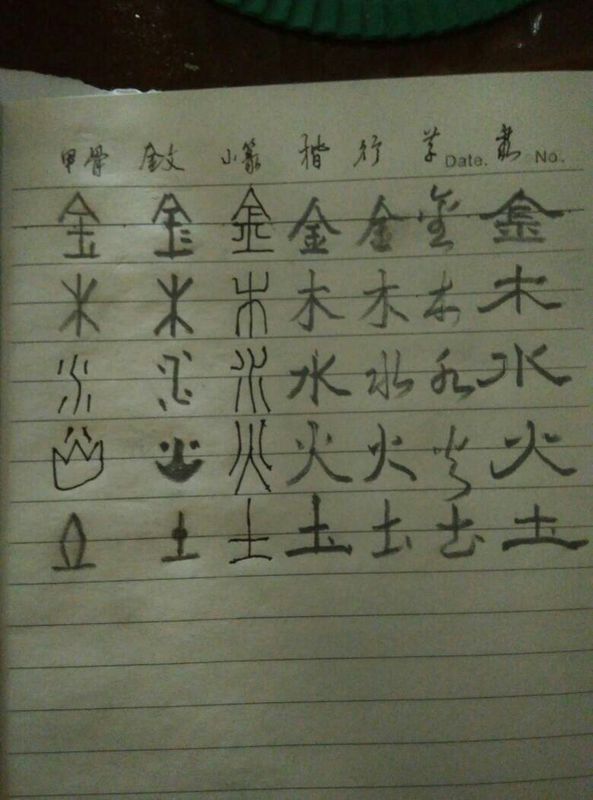 甲骨 金文 小篆 楷 行 草 隶 Date. No.
金 金 金 金 金 金 金
木 木 木 木 木 木 木
水 水 水 水 水 水 水
火 火 火 火 火 火 火
土 土 土 土 土 土 土